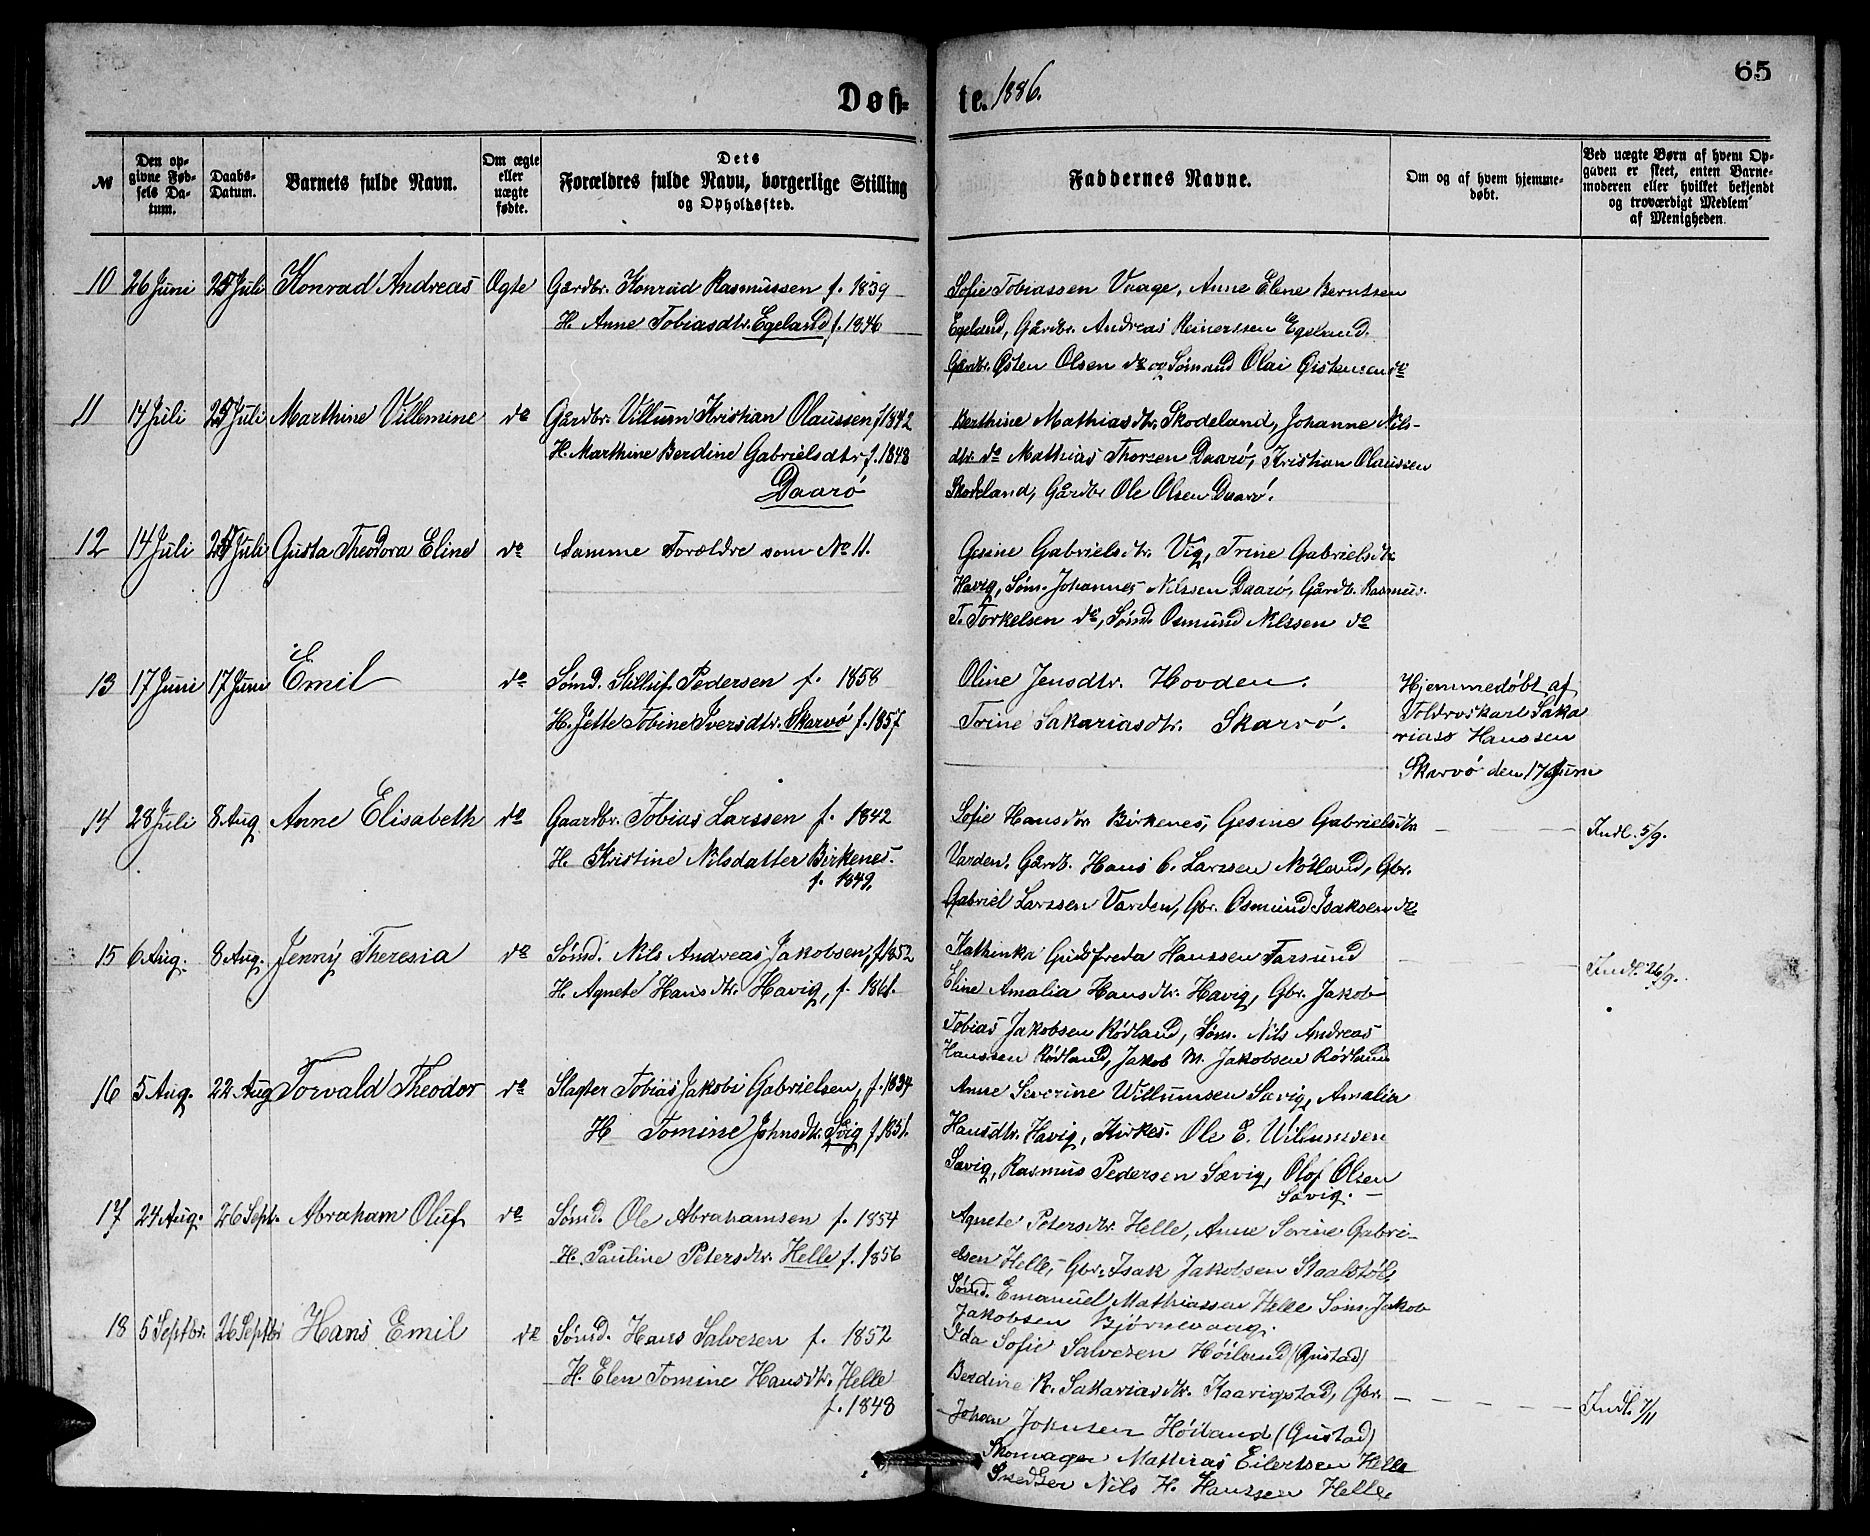 65
Døb-te. 1886.
№
Den op-
givne Fød-
sels Da-
tum.
Daabs-
Datum.
Barnets fulde Navn.
Om ægte
eller
uægte
fødte.
Dets
Forældres fulde Navn, borgerlige Stilling
og Opholdssted.
Faddernes Navne.
Om og af hvem hjemme-
døbt.
Ved uægte Børn af hvem Op-
gaven er skeet, enten Barne-
moderen eller hvilket bekjendt
og troværdigt Medlem
af Menigheden.
10 26 Juni 25 Juli Konrad Andreas Ægte Gårdbr. Konrad Rasmussen f. 1839
H. Anne Tobiasdtr. Egeland f. 1846
Sofie Tobiassen Vaage, Anne Elene Berntsen
Egeland, Gårdbr. Andreas Reinertsen Egeland.
Gårdbr. Østen Olsen do og Sømand Olai Østensen do
11 14 Juli 25 Juli Marthine Villemine do Gårdbr. Villum Kristian Olaussen f 1842
H. Marthine Berdine Gabrielsdtr f. 1848
Daarø
Berthine Mathiasdtr. Skodeland, Johanne Nils-
dtr. do Mathias Thorsen Daarø, Kristian Olaussen
Skodeland, Gårdbr Ole Olsen Daarø.
12 14 Juli 25 Juli Gusta Theodora Eline do Samme Forældre som No 11.
Gesine Gabrielsdtr. Vig, Trine Gabrielsdtr.
Havig, Søm. Johannes Nilssen Daarø, Gårdb. Rasmus
T. Torkelsen do, Sømd. Osmund Nilssen do
13 17 Juni 17 Juni Emil do Sømd. Stilluf Pedersen f. 1858
H. Jette Tobine Iversdtr. Skarvø f. 1857
Oline Jensdtr. Hovden.
Trine Sakariasdtr. Skarvø.
Hjemmedøbt af
Toldroskarl Saka
rias Hanssen
Skarvø den 17 Juni
14 28 Juli 8 Aug. Anne Elisabeth do Gaardbr. Tobias Larssen f. 1842
H. Kristine Nilsdatter Birkenes.
f. 1849.
Sofie Hansdtr Birkenes, Gesine Gabrielsdtr.
Varden. Gårdb. Hans C. Larssen Nodland, Gbr.
Gabriel Larssen Varden, Gbr. Osmund Isaksen do
Indl. 5/9.
15 6 Aug. 8 Aug. Jenny Theresia do Sømd. Nils Andreas Jakobsen, f. 1852
H. Agnete Hansdtr. Havig, f. 1861.
Kathinka Gudfreda Hanssen Farsund
Eline Amalia Hansdtr. Havig, Gbr. Jakob
Tobias Jakobsen Rødland, Søm. Nils Andreas
Hanssen Rødland, Jakob M. Jakobsen Rødland
Indl. 26/9.
16 5 Aug. 22 Aug Torvald Theodor do Slagter Tobias Jakobi Gabrielsen, f. 1834
H Tomine Johnsdtr. Svig f. 1851.
Anne Severine Willumsen Sævig, Amalia
Hansdtr. Havig, Kirkes. Ole E. Willumsen
Sævig, Rasmus Pedersen Sævig, Olof Olsen
Sævig.
17 24 Aug. 26 Sept. Abraham Oluf do Sømd. Ole Abrahamsen f. 1854
H. Pauline Petersdtr. Helle f. 1856
Agnete Petersdtr. Helle, Anne Sorine Gabri-
elsen Helle, Gbr. Isak Jakobsen Staalstøl,
Sømd. Emanuel Mathiassen Helle Søm. Jakob
Jakobsen Bjørnevaag.
18 5 Septbr. 26 Septbr Hans Emil do Sømd. Hans Salvesen f. 1852
H. Elen Tomine Hansdtr. Helle
f. 1848
Ida Sofie Salvesen Høiland (Gustad)
Berdine R. Sakariasdtr. Kaavigstad, Gbr.
Johan Johnsen Høiland (Gustad)
Skomager Mathias Eilertsen Helle
Snedker Nils H. Hanssen Helle
Indl. 7/11